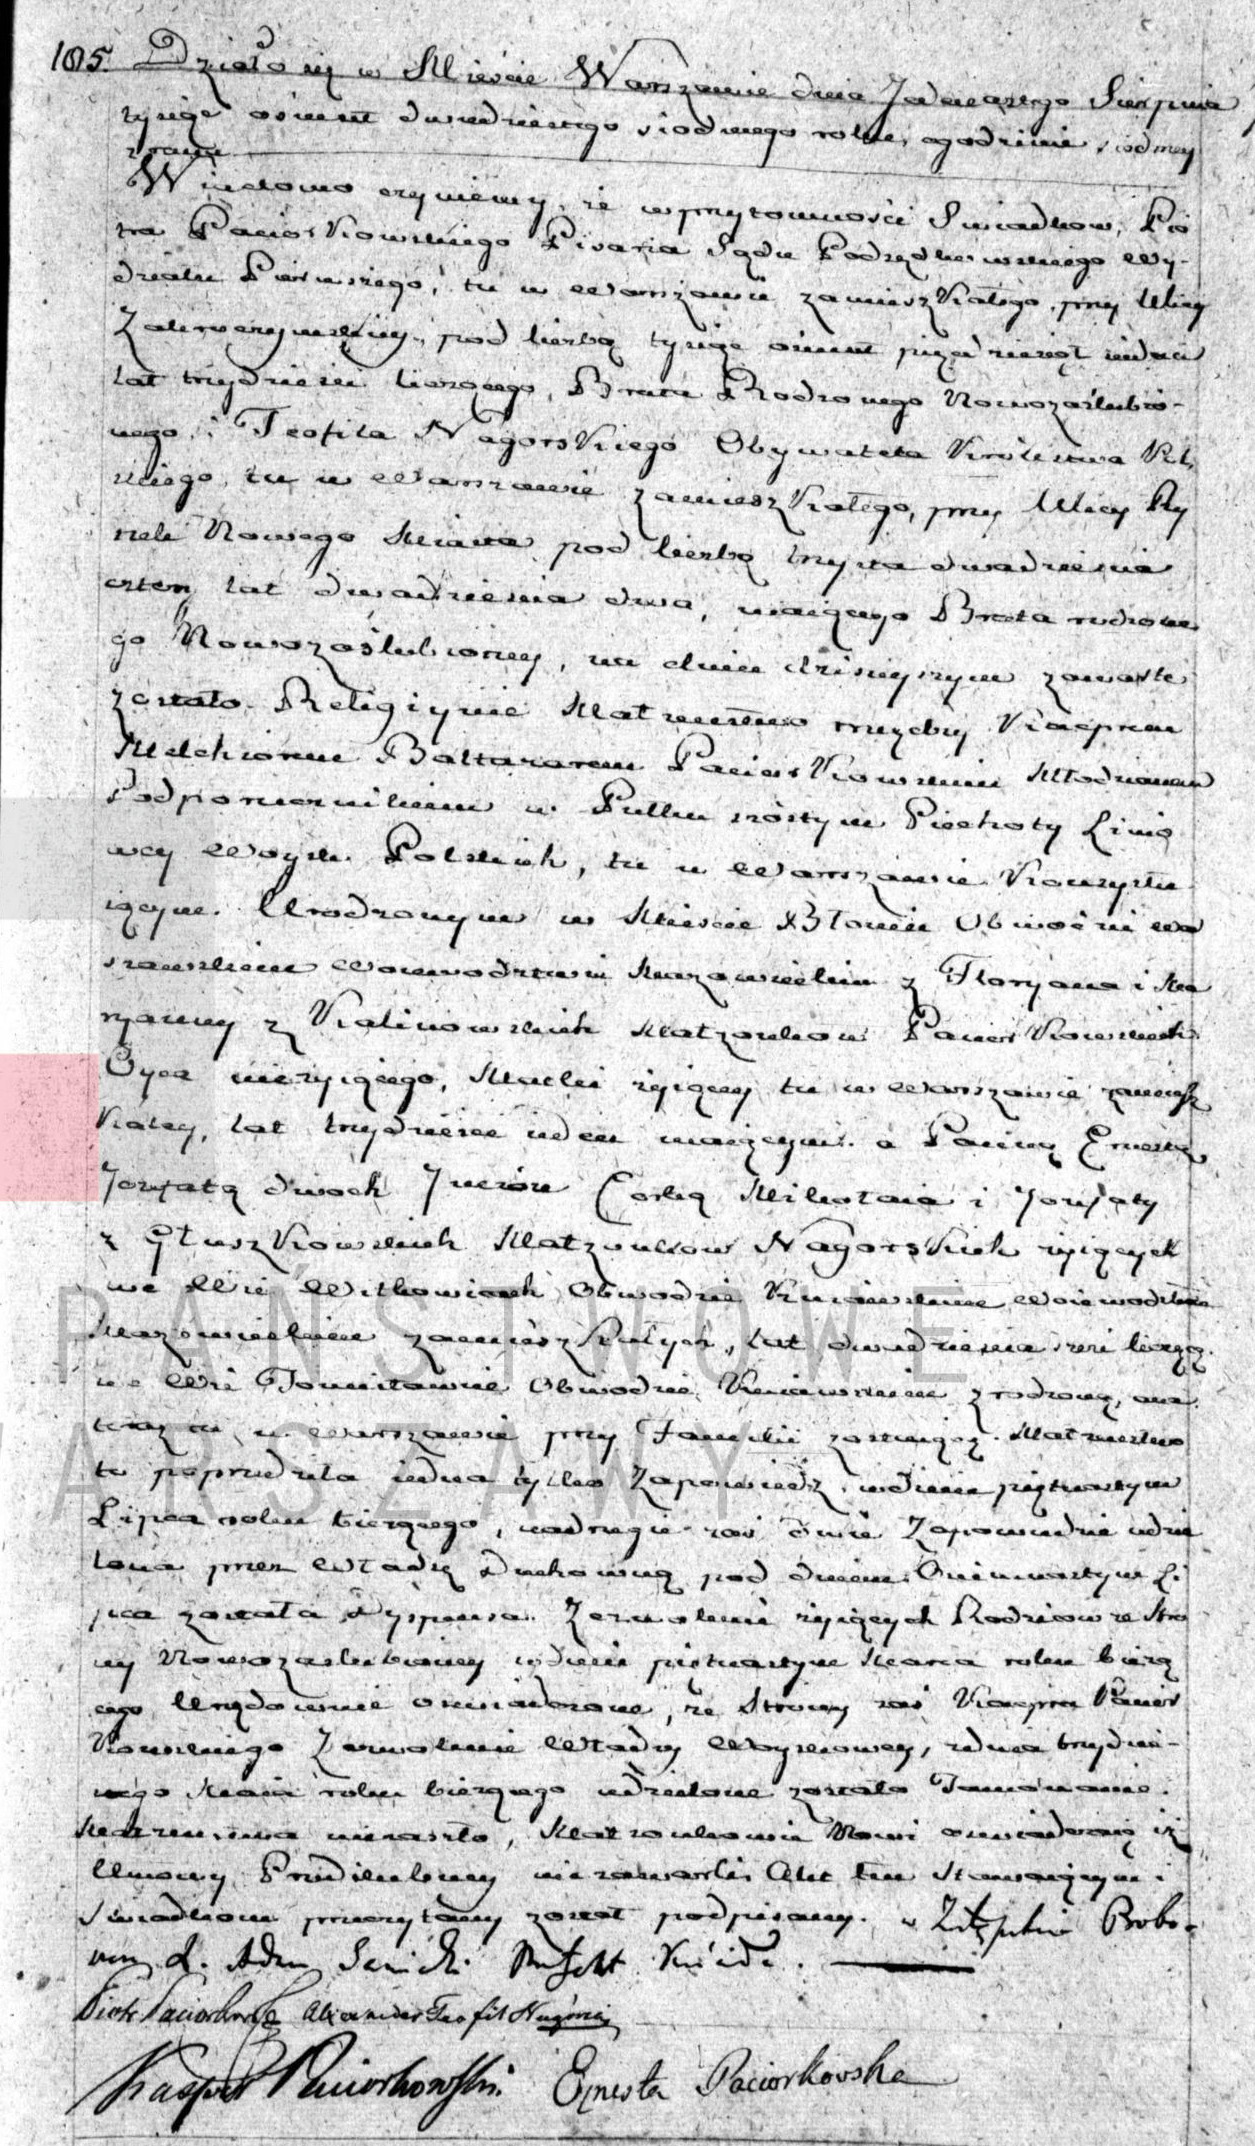 185. Działo się w Mieście Warszawie dnia Jedenastego Sierpnia
tysiąc ośmset dwudziestego siodmego roku, o godzinie siodmey
z rana
Wiadomo czyniemy, że w przytomności Swiadkow, Pio
tra Paciorkowskiego Pisarza Sądu Podsędkowskiego Wy-
działu Pierwszego, tu w Warszawie zamieszkałego, przy Ulicy
Zakroczymskiey, pod liczbą tysiąc ośmset pięćdziesiąt
lat trzydzieści liczącego, Brata Rodzonego Nowozaślubio-
nego, i Teofila Nagorskiego Obywatela Krolestwa Pol
skiego, tu w Warszawie zamieszkałego, przy Ulicy Ry
nek Nowego Miasta pod liczbą trzysta dwadzieścia
cztery lat dwadzieścia dwa, maiącego Brata rodzone
go Nowozaślubioney, na dniu dzisieyszym zawarte
zostało Religiyne Małżenstwo między Kacprem
Melchiorem Baltazarem Paciorkowskim Młodzianem
Podporucznikiem w Pułku szóstym Piechoty Linio
wey Woysk Polskich, tu w Warszawie Konsystu
iącym. Urodzonym w Mieście Błoniu Obwodzie Wa
rszawskiem Woiewodztwie Mazowieckim z Floryana i Ma
ryanny z Kalinowskich Małżonkow Paciorkowskich
Oyca nieżyiącego, Matki żyiącey tu w Warszawie zamiesz
kałey, lat trzydzieści ieden maiącym. a Panną Ernestą
Jozefatą dwoch Imion Corką Mikołaia i Jozefaty
z Głuszkowskich Małżonkow Nagorskich żyiących
we Wsi Witkowicach Obwodzie Woiewodztwie
Mazowieckiem zamieszkałych, lat dwadzieścia liczącą
we Wsi Obwodzie zrodzoną, a na
teraz tu w Warszawie przy Familii zostaiącą. Małżenstwo
to poprzedziła iedna tylko Zapowiedz, w dniu piętnastym
Lipca roku bieżącego, na drugie zaś dwie Zapowiedzie udzie
lona przez Władzę Duchowną pod dniem Ośmnastym Li
pca została Dyspensa. Zezwolenie żyiących Rodzicow ze Stro
ny Nowozaslubioney w dniu piętnastym Marca roku bieżą
cego Urzędownie oswiadczone, ze Strony zaś Kacpra Pacior
kowskiego Zezwolenie Władzy Woyskowey, z dnia trzydzie-
stego Maia roku bieżącego udzielone zostało Tamowanie
Małżenstwa niezaszło, Małżonkowie Nowi oswiadczaią iż
Umowy Przedslubney nie zawarli Akt ten Stawaiącym i
Swiadkom przeczytany został podpisany.
Piotr Paciorkowski Alexander Teofil Nagórski
Kasper Paciorkowski. Ernesta Paciorkowska
PAŃSTWOWE
WARSZAWY